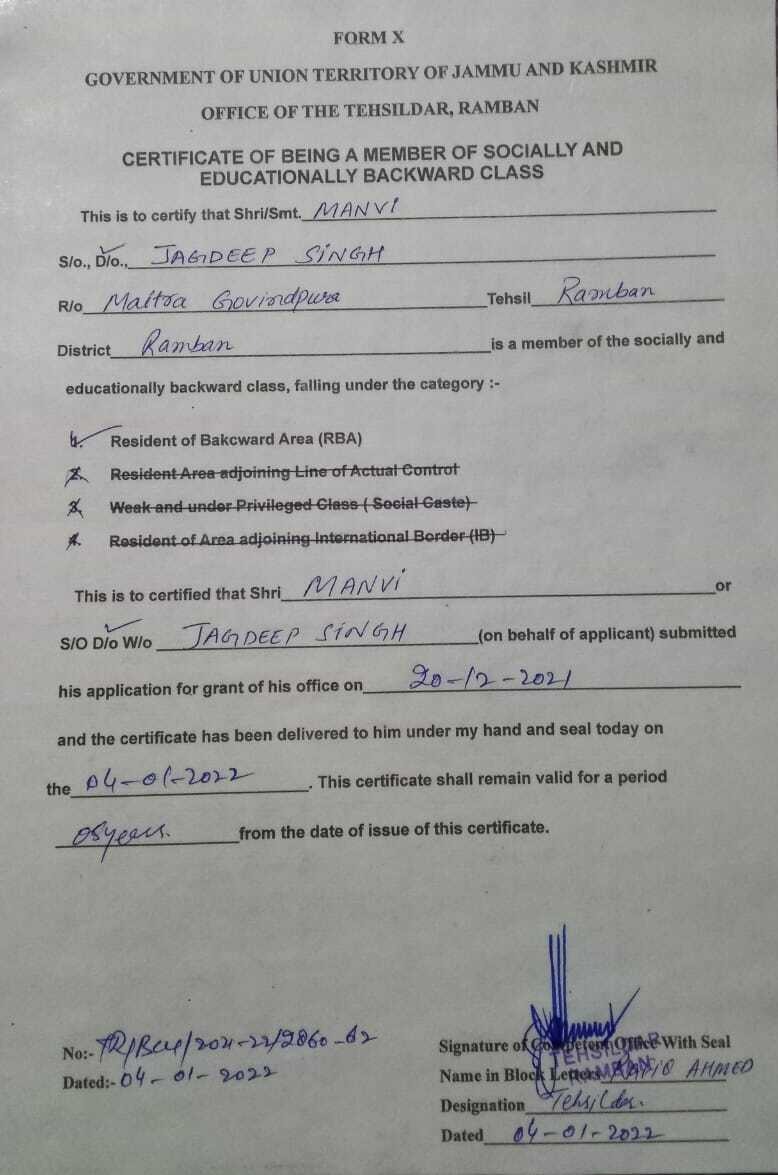 FORM X
GOVERNMENT OF UNION TERRITORY OF JAMMU AND KASHMIR
OFFICE OF THE TEHSILDAR, RAMBAN
CERTIFICATE OF BEING A MEMBER OF SOCIALLY AND
EDUCATIONALLY BACKWARD CLASS
This is to certify that Shri/Smt. MANVI
S/o., D/o., JAGDEEP SINGH
R/o Maitra Govindpura Tehsil Ramban
District Ramban is a member of the socially and
educationally backward class, falling under the category :-
1. Resident of Bakcward Area (RBA)
2. Resident Area adjoining Line of Actual Control
3. Weak and under Privileged Class ( Social Caste)
4. Resident of Area adjoining International Border (IB)
This is to certified that Shri MANVI or
S/O D/o W/o JAGDEEP SINGH (on behalf of applicant) submitted
his application for grant of his office on 20-12-2021
and the certificate has been delivered to him under my hand and seal today on
the 04-01-2022. This certificate shall remain valid for a period
05 years. from the date of issue of this certificate.
No:- /2021-22/2860-62
Signature of Competent Office With Seal
TEHSILDAR
RAMBAN
Dated:- 04-01-2022
Name in Block Letters RAFIQ AHMED
Designation Tehsildar.
Dated 04-01-2022